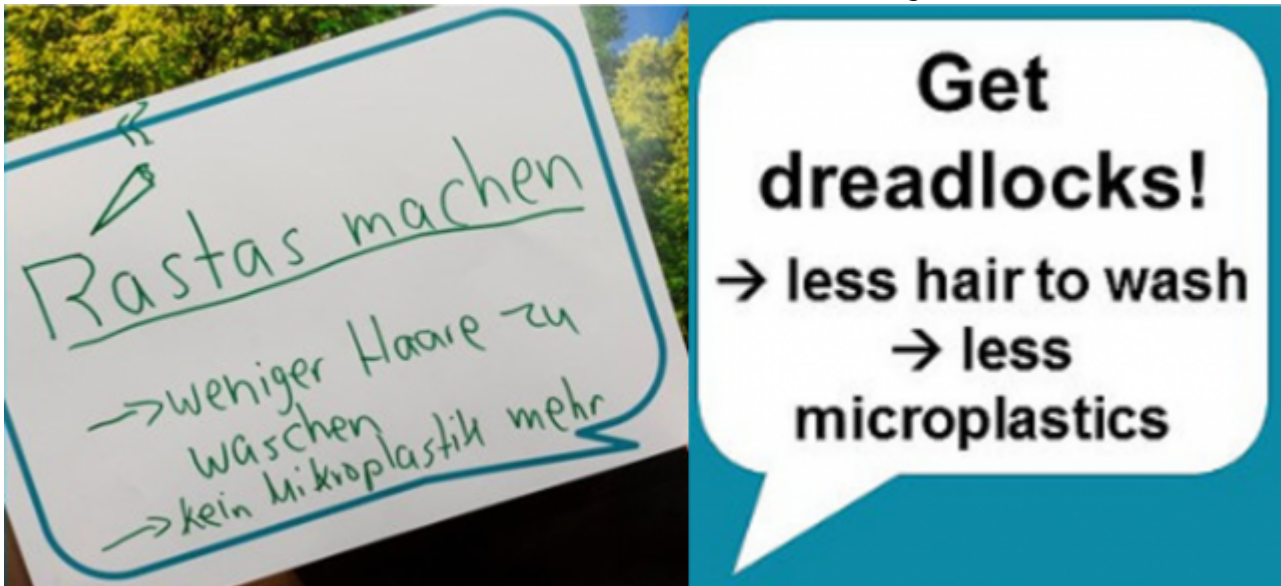 Rastas machen
→ weniger Haare zu
waschen
→ kein Mikroplastik mehr
Get
dreadlocks!
→ less hair to wash
→ less
microplastics